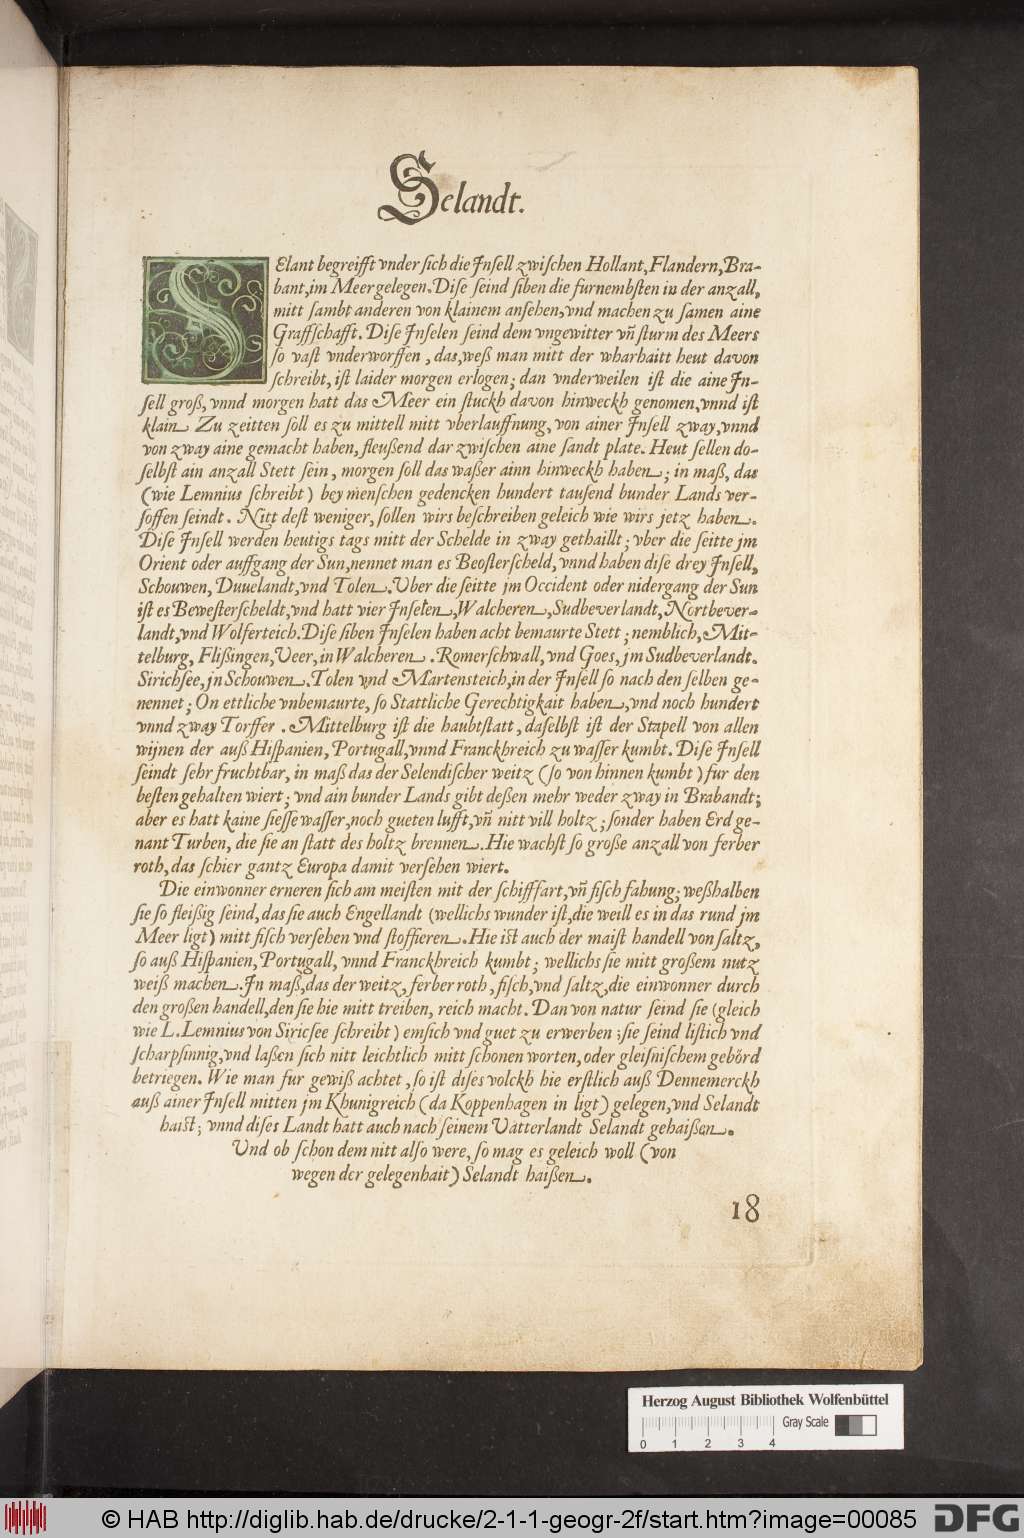 Selandt.
SElant begreifft vnder sich die Jnsell zwischen Hollant, Flandern, Bra-
bant, im Meer gelegen. Dise seind siben die furnembsten in der anzall,
mitt sambt anderen von klainem ansehen, vnd machen zu samen aine
Graffschafft. Dise Jnselen seind dem vngewitter vñ sturm des Meers
so vast vnderworffen, das, weß man mitt der wharhaitt heut davon
schreibt, ist laider morgen erlogen; dan vnderweilen ist die aine Jn-
sell groß, vnnd morgen hatt das Meer ein stuckh davon hinweckh genomen, vnnd ist
klain. Zu zeitten soll es zu mittell mitt vberlauffnung, von ainer Jnsell zway, vnnd
von zway aine gemacht haben, fleußend dar zwischen aine sandt plate. Heut sellen do-
selbst ain anzall Stett sein, morgen soll das waßer ainn hinweckh haben; in maß, das
(wie Lemnius schreibt) bey menschen gedencken hundert tausend bunder Lands ver-
soffen seindt. Nitt dest weniger, sollen wirs beschreiben geleich wie wirs jetz haben.
Dise Jnsell werden heutigs tags mitt der Schelde in zway gethaillt; vber die seitte jm
Orient oder auffgang der Sun, nennet man es Beosterscheld, vnnd haben dise drey Jnsell,
Schouwen, Duuelandt, vnd Tolen. Uber die seitte jm Occident oder nidergang der Sun
ist es Bewesterscheldt, vnd hatt vier Jnselen, Walcheren, Sudbeverlandt, Nortbever-
landt, vnd Wolferteich. Dise siben Jnselen haben acht bemaurte Stett; nemblich, Mit-
telburg, Flißingen, Veer, in Walcheren. Romerschwall, vnd Goes, jm Sudbeverlandt.
Sirichsee, jn Schouwen. Tolen vnd Martensteich, in der Jnsell so nach den selben ge-
nennet; On ettliche vnbemaurte, so Stattliche Gerechtigkait haben, vnd noch hundert
vnnd zway Torffer. Mittelburg ist die haubtstatt, daselbst ist der Stapell von allen
wijnen der auß Hispanien, Portugall, vnnd Franckhreich zu wasser kumbt. Dise Jnsell
seindt sehr fruchtbar, in maß das der Selendischer weitz (so von hinnen kumbt) fur den
besten gehalten wiert; vnd ain bunder Lands gibt deßen mehr weder zway in Brabandt;
aber es hatt kaine siesse wasser, noch gueten lufft, vñ nitt vill holtz; sonder haben Erd ge-
nant Turben, die sie an statt des holtz brennen. Hie wachst so große anzall von ferber
roth, das schier gantz Europa damit versehen wiert.
Die einwonner erneren sich am meisten mit der schifffart, vñ fisch fahung; weßhalben
sie so fleißig seind, das sie auch Engellandt (wellichs wunder ist, die weill es in das rund jm
Meer ligt) mitt fisch versehen vnd stoffieren. Hie ist auch der maist handell von saltz,
so auß Hispanien, Portugall, vnnd Franckhreich kumbt; wellichs sie mitt großem nutz
weiß machen. Jn maß, das der weitz, ferber roth, fisch, vnd saltz, die einwonner durch
den großen handell, den sie hie mitt treiben, reich macht. Dan von natur seind sie (gleich
wie L. Lemnius von Siricsee schreibt) emsich vnd guet zu erwerben; sie seind listich vnd
scharpsinnig, vnd laßen sich nitt leichtlich mitt schonen worten, oder gleisnischem gebörd
betriegen. Wie man fur gewiß achtet, so ist dises volckh hie erstlich auß Dennemerckh
auß ainer Jnsell mitten jm Khunigreich (da Koppenhagen in ligt) gelegen, vnd Selandt
haist; vnnd dises Landt hatt auch nach seinem Vatterlandt Selandt gehaißen.
Und ob schon dem nitt also were, so mag es geleich woll (von
wegen der gelegenhait) Selandt haißen.
18
Herzog August Bibliothek Wolfenbüttel
Gray Scale
0 1 2 3 4
© HAB http://diglib.hab.de/drucke/2-1-1-geogr-2f/start.htm?image=00085
DFG